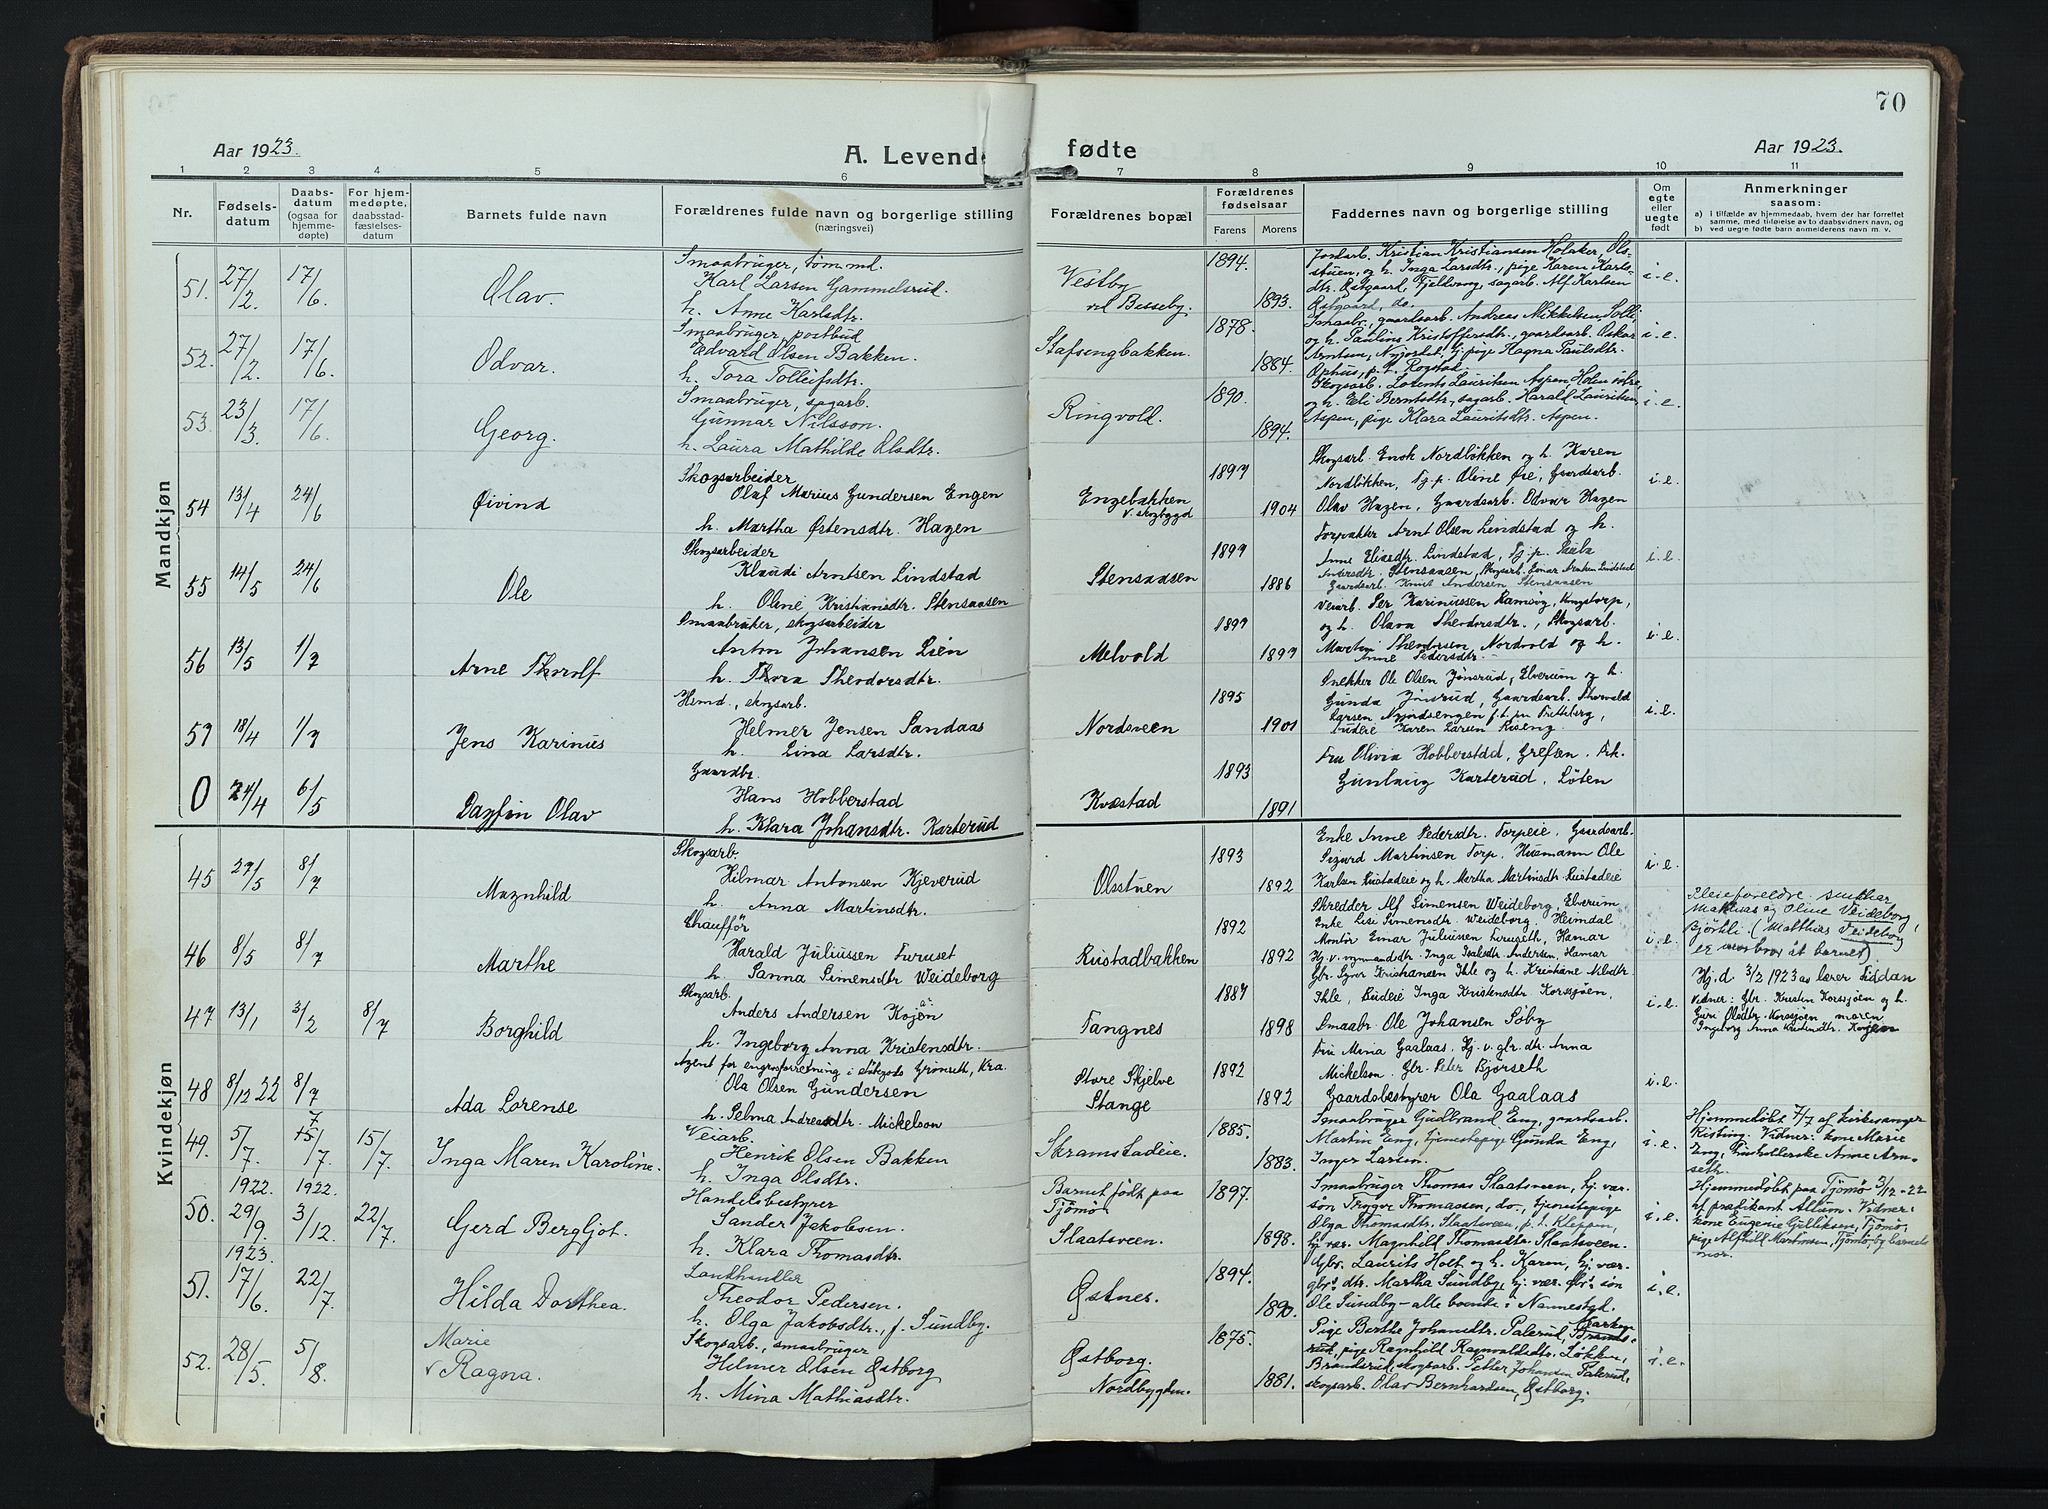 70
Aar 1923.
A. Levende fødte
Aar 1923.
1 2 3 4 5 6 7 8 9 10 11
Nr.
Fødselsdatum
Daabsdatum (ogsaa for hjemmedøpte)
For hjemmedøpte, daabsstadfæstelsesdatum
Barnets fulde navn
Forældrenes fulde navn og borgerlige stilling (næringsvei)
Forældrenes bopæl
Forældrenes fødselsaar
Farens Morens
Faddernes navn og borgerlige stilling
Om egte eller uegte født
Anmerkninger saasom:
a) i tilfælde av hjemmedaab, hvem der har forrettet samme, med tilføielse av to daabsvidners navn, og
b) ved uegte fødte barn anmelderens navn m. v.
Mandkjøn
51. 27/2. 17/6. Olav.
Smaabruger, tømm.
Karl Larsen Gammelsrud.
h. Anne Karlsdtr.
Vestby
ved Bisseby.
1894. 1893.
Jordarb. Kristian Kristiansen Holaker, Ols-
stuen, og h. Inga Larsdtr., pige Karen Karls-
dtr. Østgaard, Fjeldvang, sagarb. Alf Karlsen
Østgaard, do.
i.e.
52. 27/2. 17/6. Odvar.
Smaabruger, postbud
Edvard Olsen Bakken.
h. Tora Tolleifsdtr.
Stafsengbakken.
1878. 1884.
Smaabr., gaardsarb. Andreas Mikkelsen Solli
og h. Pauline Kristoffersdtr., gaardsarb. Oskar
Arntsen, Nyjordet, hj. pige Ragna Paulsdtr.
Ophus, p.t. Rogstad.
i.e.
53. 23/3. 17/6. Georg.
Smaabruger, sagarb.
Gunnar Nilsson.
h. Laura Mathilde Olsdtr.
Ringvold.
1890. 1894.
Skogsarb. Lorents Lauritsen Aspen, Holen søbre
og h. Eli Berntsdtr., sagarb. Harald Lauritsen
Aspen, pige Klara Lauritsdtr. Aspen.
i.e.
54 13/4 24/6 Øivind
Skogsarbeider
Olaf Marius Gundersen Engen
h. Martha Østensdtr. Hagen
Engebakken
v. skogbygd
1897 1904
Skogsarb. Enok Nordløkken og h. Karen
Nordløkken, Tj. p. Oline Øie, Gaardsarb.
Olav Hagen, Gaardsarb. Odvar Hagen
i.e.
55 14/5 24/6 Ole
Skogsarbeider
Klaudi Arntsen Lindstad
h. Oline Kristiansdtr. Stensaasen
Stensaasen
1899 1886
Forpakter Arnt Olsen Lindstad og h.
Anne Eliasdtr. Lindstad, Tj.p.
Andersdtr. Stensaasen, Skogsarb. Einar Arntsen Lindstad
Gaardsarb. Knut Andersen Stensaasen
i.e.
56 13/5 1/7 Arne Thorolf
Smaabruker, skogsarbeider
Anton Johansen Lien
h. Thora Theodorsdtr.
Melvold
1899 1899
Veiarb. Per Karinussen Ramsøy, Kongstorp,
og h. Olava Theodorsdtr., Skogsarb.
Martin Theodorsen Nordvold og h.
Anne Pedersdtr.
i.e.
57 18/4 1/7 Jens Karinus
Hemd., skogsarb.
Helmer Jensen Sandaas
h. Lina Larsdtr.
Nordsveen
1895 1901
Snekker Ole Olsen Jønsrud, Elverum og h.
Gunda Jønsrud, Gaardsarb. Thorvald
Larsen Nyjordsengen f.t. paa
Budeie Karen Larsen Riseng
i.e.
0 24/4 6/5 Dagfin Olav
Gaardbr.
Hans Hobberstad
h. Klara Johansdtr. Karterud
Kvæstad
1893 1891
Fru Olivia Hobberstad, Grefsen. Frk.
Gunlaug Karterud, Løten
Kvindekjøn
45 27/5 8/7 Magnhild
Skogsarb.
Hilmar Antonsen Kjeverud
h. Anna Martinsdtr.
Olsstuen
1893 1892
Enke Anne Pedersdtr. Torpeie, Gaardsarb.
Sigurd Martinsen Torp, Husmann Ole
Karlsen Rustadeie og h. Martha Martinsdtr. Rustadeie
i.e.
46 8/5 8/7 Marthe
Chauffør
Harald Juliussen Furuset
h. Sanna Simensdtr Weideborg
Rustadbakken
1892 1892
Skredder Alf Simensen Weideborg, Elverum
Enke Lise Simensdtr. Weideborg, Heimdal
Montør Einar Juliussen Furuseth, Hamar
Hj.v. ugmandsdtr. Inga Isaksdtr Andersen, Hamar
i.e.
Pleieforeldre: smakker
Mathias og Oline Veideborg,
Bjørkli (Matthias Veideborg
er morbror åt barnet).
47 13/1 3/2 8/7 Borghild
Skogsarb.
Anders Andersen Kojen
h. Ingeborg Anna Kristensdtr.
Tangnes
1887 1898
Gbr. Syver Kristiansen Ihle og h. Kristiane Nilsdtr
Ihle, Budeie Inga Kristensdtr. Korssjøen,
Smaabr. Ole Johansen Søby
i.e.
Hj.d. 3/2 1923 av lærer Fiddan
Vidner: Gbr. Kristen Korssjøen og h.
Guri Olsdtr. Korssjøen moren
Ingeborg Anna Kristensdtr. Kojen
48 8/12 22 8/7 Ada Lorense
Agent for engrosforretning i Grønset, Kra.
Ola Olsen Gundersen
h. Selma Andreasdtr. Mickelson
Store Skjelve
Stange
1892 1892
Fru Mina Gaalaas. Hj. v. glr. dtr. Anna
Mickelson. Gbr. Peter Bjørseth
Gaardsbestyrer Ola Gaalaas
i.e.
49. 5/7. 7 15/7. 15/7. Inga Maren Karoline.
Veiarb.
Henrik Olsen Bakken
h. Inga Olsdtr.
Skramstadeie.
1885. 1883.
Smaabruger Gudbrand Eng, gaardsarb.
Martin Eng, tjenestepige Gunda Eng,
Inger Larsen.
i.e.
Hjemmedøbt 7/7 af kirkesanger
Risting. Vidner: kone Marie
Eng, Husholderske Anne Arn-
seth.
50. 1922. 29/9. 1922. 3/12. 22/7. Gerd Bergljot.
Handelsbestyrer
Sander Jakobsen.
h. Klara Thomasdtr.
Barnet født paa
Tjømø.
Slaatsveen.
1897. 1898.
Smaabruger Thomas Slaatsveen, hj. vær.
søn Trygve Thomassen, do., tjenestepige
Olga Thomasdtr. Slaatsveen, p.t. Kleppen,
hj. vær. Magnhild Thomasdtr. Slaatsveen.
i.e.
Hjemmedøbt paa Tjømø 3/12-22
af præstikant Allum. Vidner:
kone Eugenie Gulliksen, Tjømø,
pige Alfhild Martinsen, Tjømø, og barnets
mor.
51. 1923. 17/6. 22/7. Hilda Dorthea.
Landhandler
Theodor Pedersen.
h. Olga Jakobsdtr., f. Sundby.
Østner.
1894. 1890.
Gbr. Laurits Holt og h. Karen, hj. vær.
gbr.s dtr. Martha Sundby, hj. vær. gbr.s søn
Ole Sundby – alle boende i Nannestad.
i.e.
52. 28/5. 5/8. Marie
v Ragna.
Skogsarb., smaabruger
Helmer Olsen Østborg
h. Mina Mathiasdtr.
Østborg.
Nordbygden.
1875. 1881.
Pige Berthe Johandtr. Palerud,
pige Ragnhild Ragnvaldsdtr. Løkken,
Branderud, skogsarb. Petter Johansen Palerud,
skogsarb. Olav Bernhardsen, Østborg.
i.e.